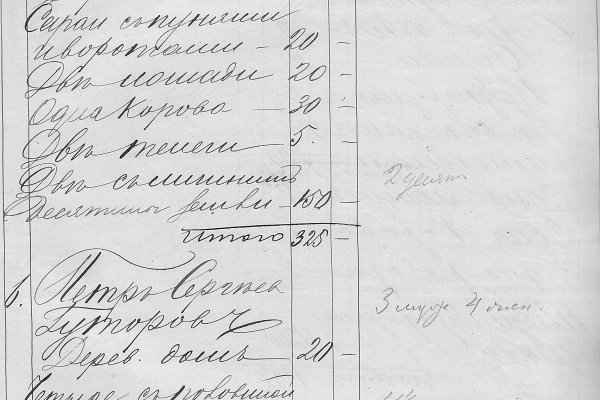 Сарай съ пунями
и воротами — 20 —
Двѣ лошади 20 —
Одна корова — 30 —
Двѣ телеги 5. —
Двѣ съ
десятины земли — 150 — 2 десят.
Итого 325 —
6. Петръ Сергѣев
Гуторовъ 3 муж. 4 жен.
Дерев. домъ — 20 —
Четыре съ половиной